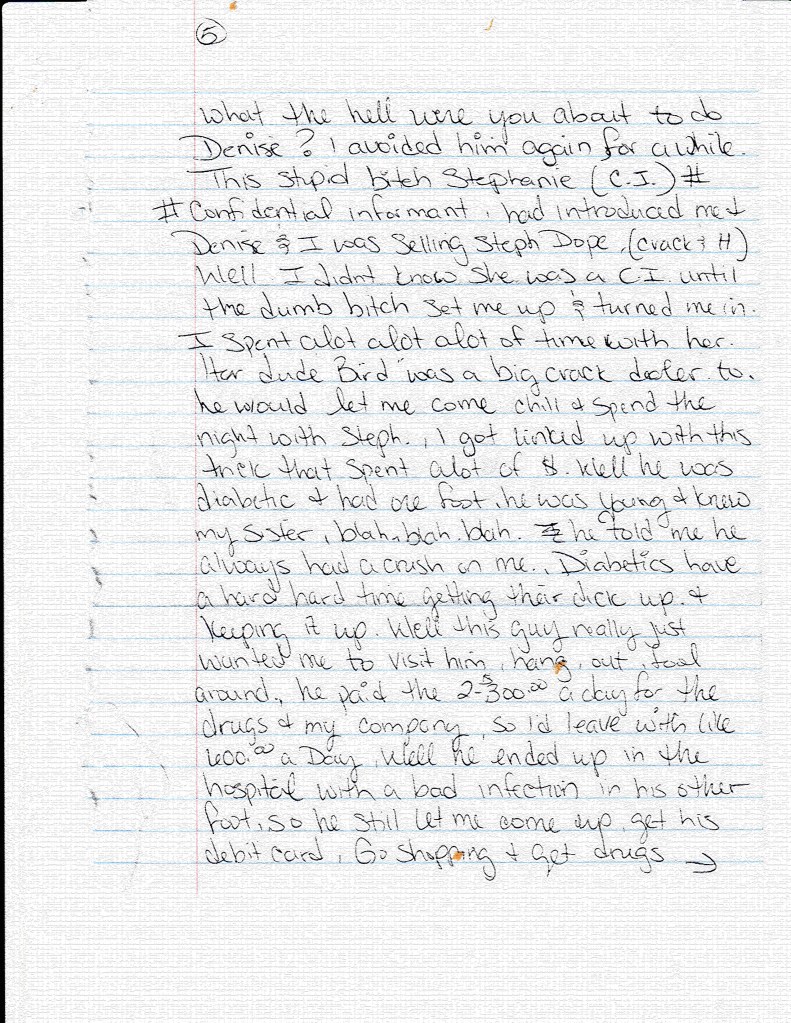 5
what the hell were you about to do
Denise? I avoided him again for a while.
This stupid bitch Stephanie (C.I.) #
# Confidential informant, had introduced me &
Denise & I was selling Steph Dope, (crack & H)
Well I didnt know she was a C.I. until
the dumb bitch set me up & turned me in.
I spent alot alot alot of time with her.
Her dude Bird "was a big crack dealer to.
he would let me come chill & spend the
night with Steph., I got linked up with this
trick that spent alot of $. Well he was
diabetic & had one foot, he was young & knew
my sister, blah, blah. blah. he told me he
always had a crush on me., Diabetics have
a hard hard time getting their dick up. &
keeping it up. Well this guy really just
wanted me to visit him, hang, out, fool
around., he paid the 2-300.00 a day for the
drugs & my company, so I'd leave with like
600.00 a Day, Well he ended up in the
hospital with a bad infection in his other
foot, so he still let me come up, get his
debit card, Go shopping & get drugs →